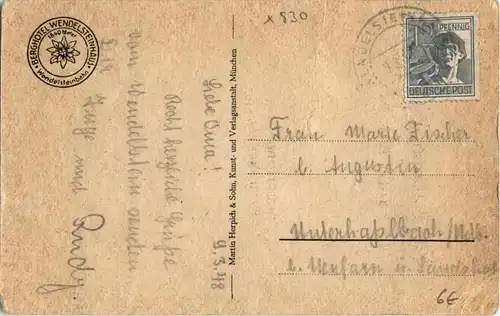 BERGHOTEL WENDELSTEINHAUS
1840 Meter
Wendelsteinbahn
x 830
WENDELSTEINH
PFENNIG
DEUTSCHE POST
9.3.48
Liebe Oma!
Recht herzliche Grüße
vom Wendelstein senden
Dir Inge und Rudy.
Martin Herpich & Sohn, Kunst- und Verlagsanstalt, München
Frau Marie Fischer
b. Augustin
Unterhaßlbach
b.
6€